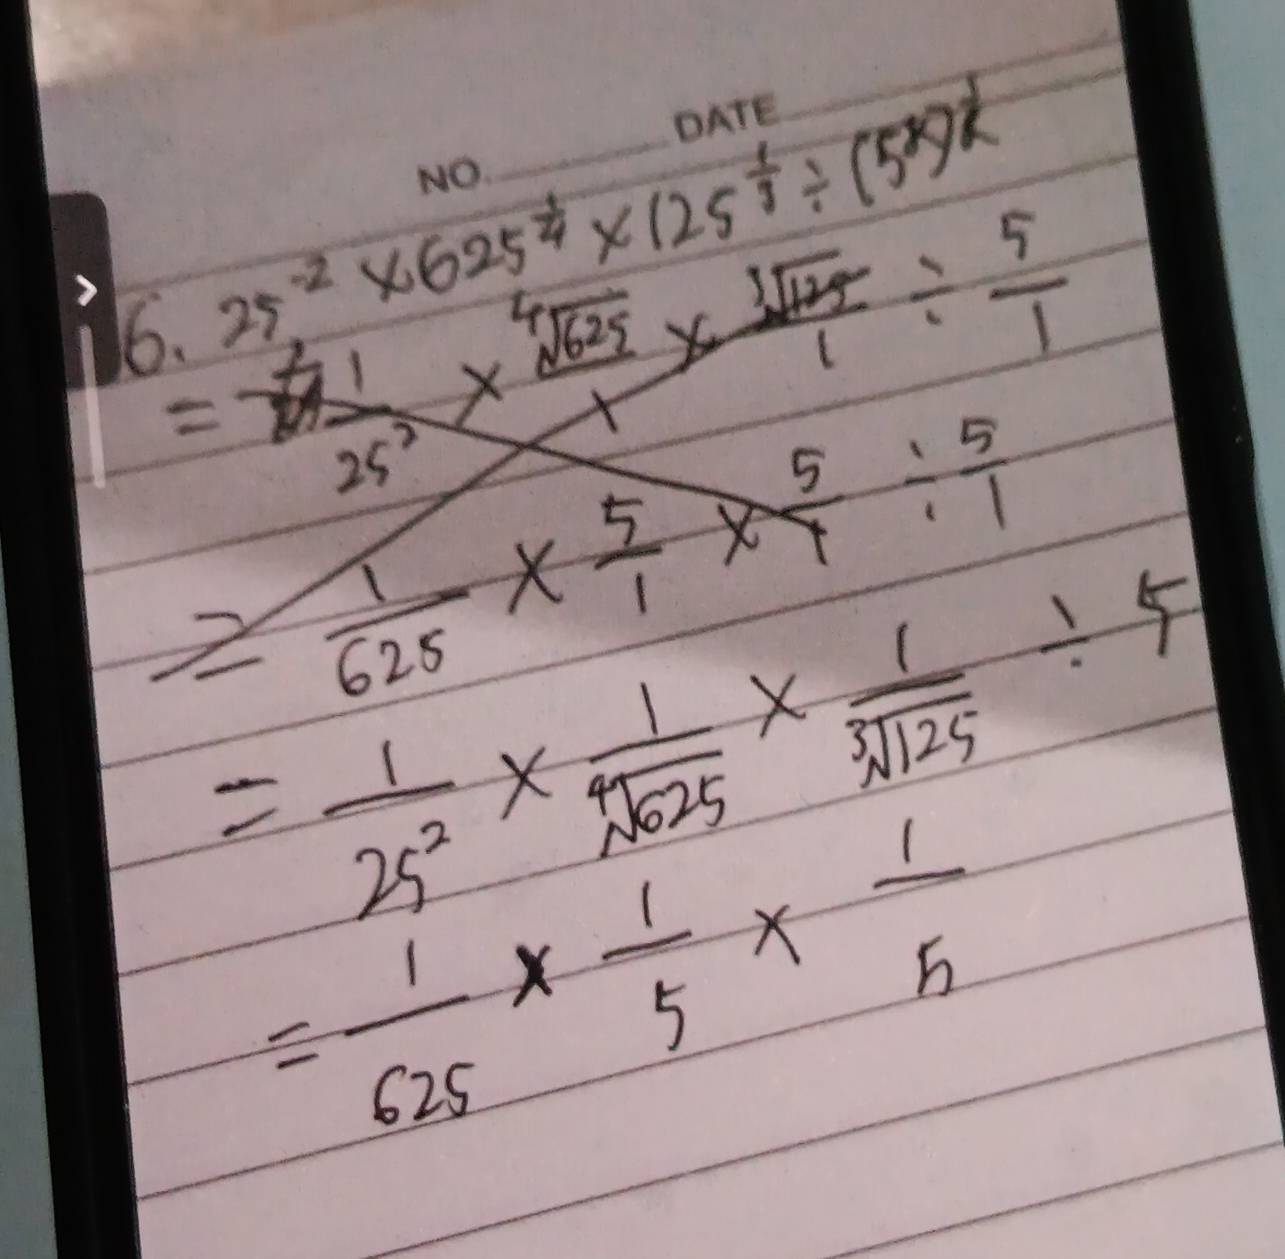 NO. DATE
6. 25⁻² × 625^(1/4) × 125^(1/3) ÷ (5²)^(1/2)
= 1/25² × ⁴√625/1 × ³√125/1 ÷ 5/1
= 1/625 × 5/1 × 5/1 ÷ 5/1
= 1/25² × 1/⁴√625 × 1/³√125 ÷ 5
= 1/625 × 1/5 × 1/5